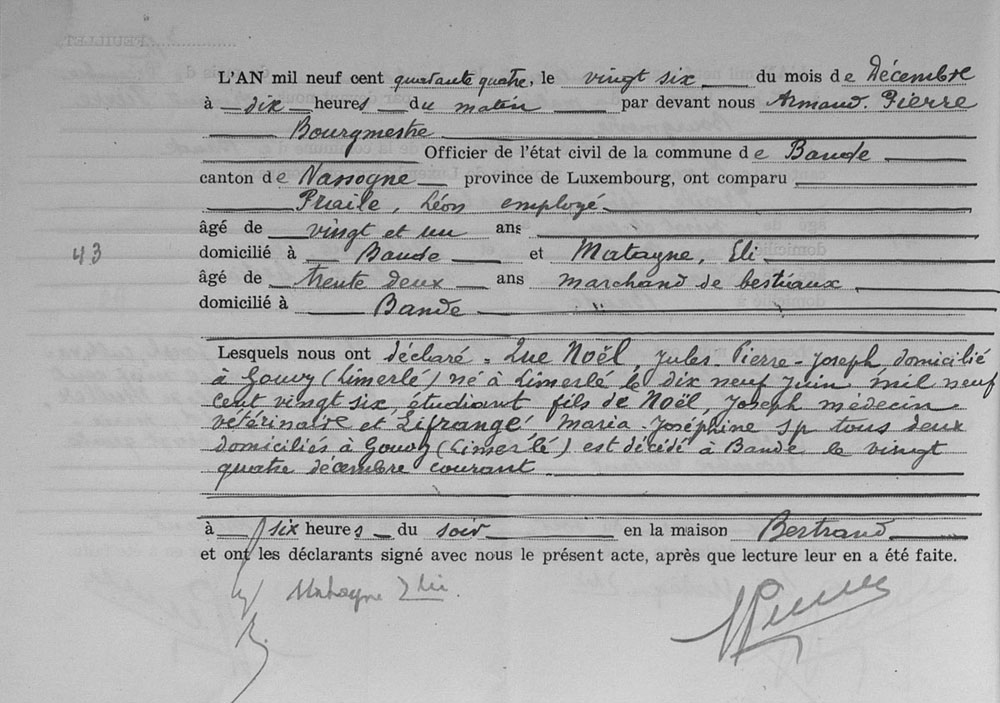 FEUILLET
L'AN mil neuf cent quarante quatre, le vingt six du mois de Décembre
à dix heures du matin par devant nous Armand. Pierre
Bourgmestre
Officier de l'état civil de la commune de Bande
canton de Nassogne province de Luxembourg, ont comparu
Priaile, Léon employé
âgé de vingt et un ans
43 domicilié à Bande et Matagne, Eli
âgé de trente deux ans marchand de bestiaux
domicilié à Bande
Lesquels nous ont déclaré - Que Noël, Jules Pierre-Joseph, domicilié
à Gouvy (Limerlé) né à Limerlé le dix neuf juin mil neuf
cent vingt six, étudiant, fils de Noël, Joseph médecin
vétérinaire et Lifrange Maria-Joséphine sp tous deux
domiciliés à Gouvy (Limerlé) est décidé à Bande le vingt
quatre décembre courant
à six heures du soir en la maison Bertrand
et ont les déclarants signé avec nous le présent acte, après que lecture leur en a été faite.
Matagne Eli.